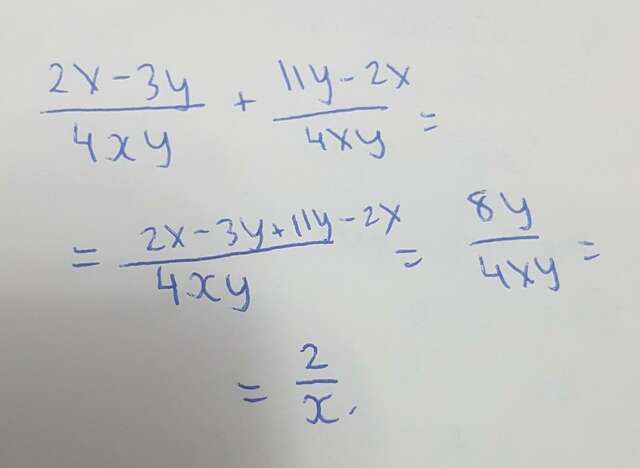 (2x-3y)/(4xy) + (11y-2x)/(4xy) =
= (2x-3y+11y-2x)/(4xy) = (8y)/(4xy) =
= 2/x.